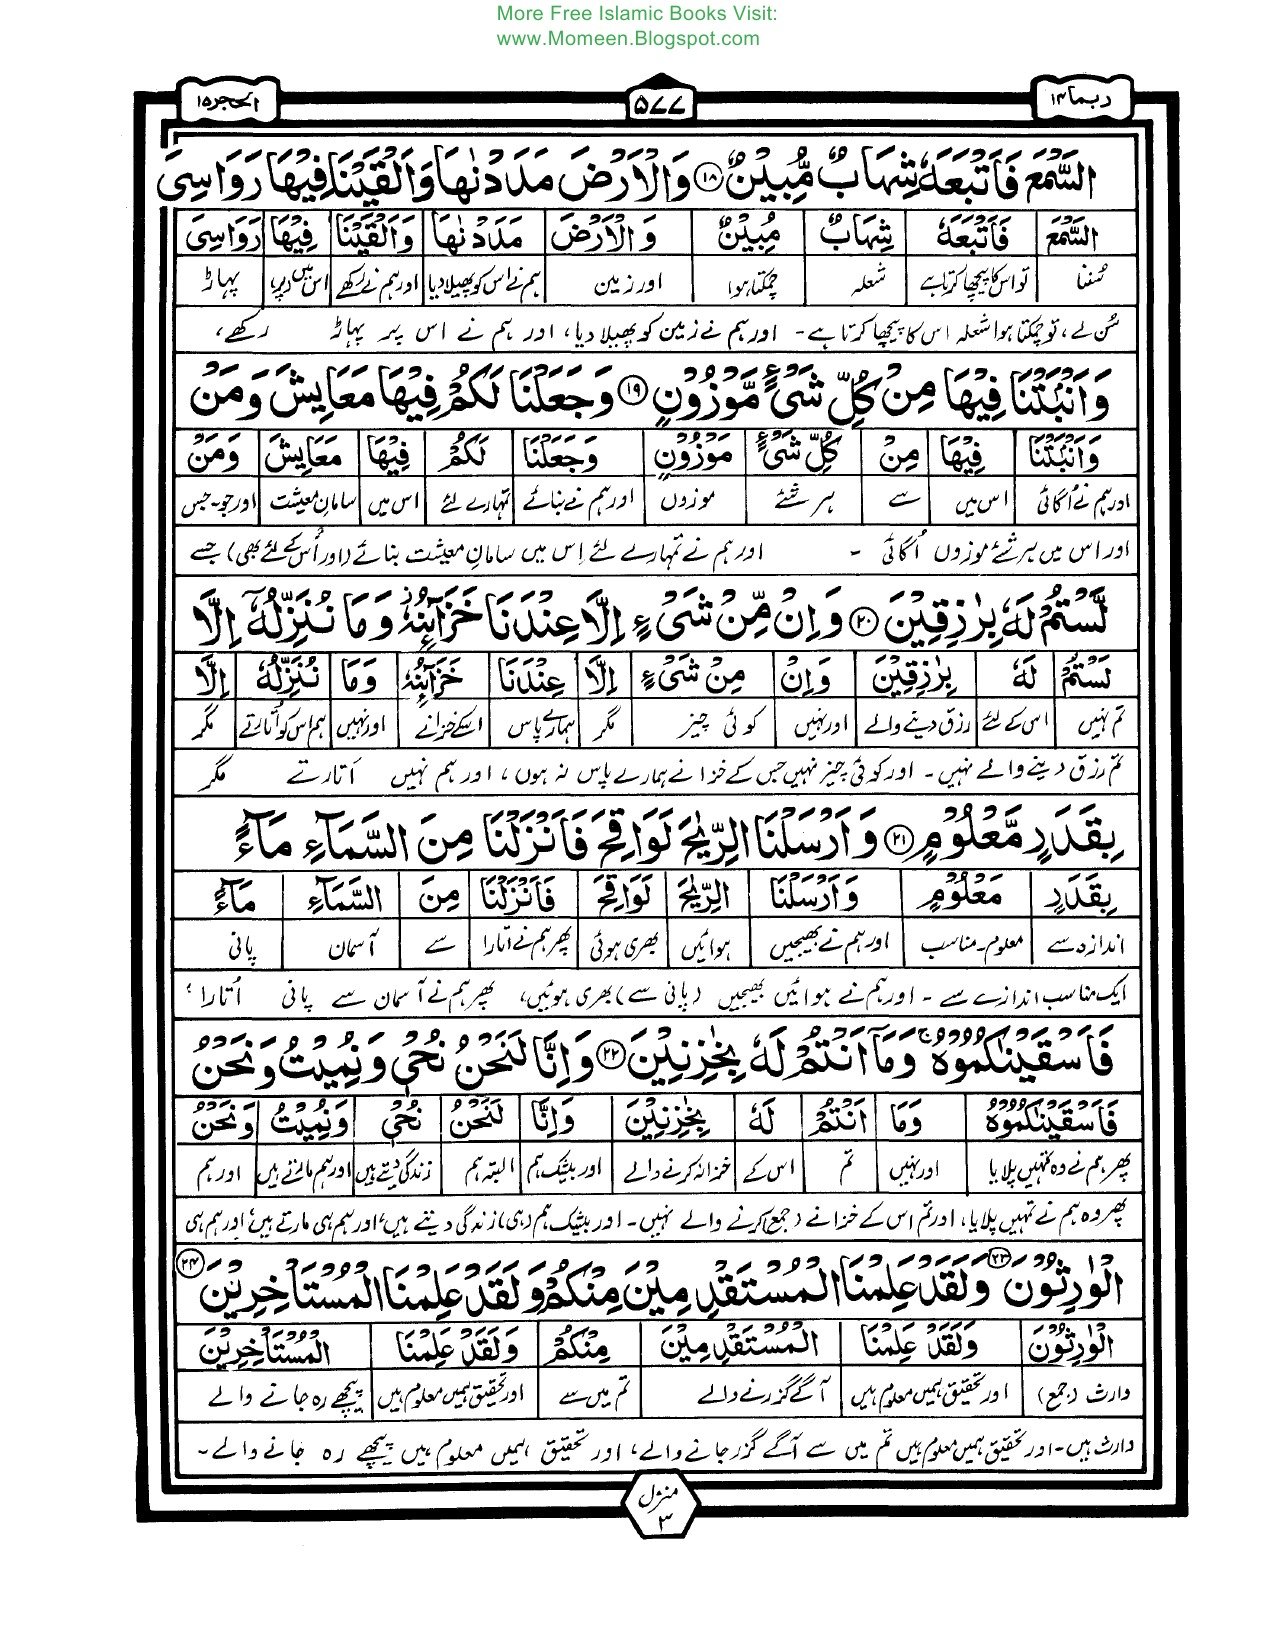 More Free Islamic Books Visit:
www.Momeen.Blogspot.com
ربما ۱۴
۵۷۷
الحجر ۱۵
السَّمْعَ فَاَتْبَعَهٗ شِهَابٌ مُّبِيْنٌ ۱۸ وَالْاَرْضَ مَدَدْنٰهَا وَاَلْقَيْنَا فِيْهَا رَوَاسِىَ
السَّمْعَ فَاَتْبَعَهٗ شِهَابٌ مُبِيْنٌ وَالْاَرْضَ مَدَدْنٰهَا وَاَلْقَيْنَا فِيْهَا رَوَاسِىَ
سُننا تو اس کا پیچھا کرتا ہے شعلہ چمکتا ہوا اور زمین ہم نے اس کو پھیلا دیا اور ہم نے رکھے اس میں (پر) پہاڑ
سُن لے، تو چمکتا ہوا شعلہ اس کا پیچھا کرتا ہے۔ اور ہم نے زمین کو پھیلا دیا، اور ہم نے اس پر پہاڑ رکھے،
وَاَنْۢبَتْنَا فِيْهَا مِنْ كُلِّ شَىْءٍ مَّوْزُوْنٍ ۱۹ وَجَعَلْنَا لَكُمْ فِيْهَا مَعَايِشَ وَمَنْ
وَاَنْۢبَتْنَا فِيْهَا مِنْ كُلِّ شَىْءٍ مَوْزُوْنٍ وَجَعَلْنَا لَكُمْ فِيْهَا مَعَايِشَ وَمَنْ
اور ہم نے اُگائی اس میں سے ہر شئے موزوں اور ہم نے بنائے تمہارے لئے اس میں سامانِ معیشت اور جو۔جس
اور اس میں ہر شئے موزوں اُگائی ۔ اور ہم نے تمہارے لئے اِس میں سامانِ معیشت بنائے (اور اُس کے لئے بھی) جسے
لَّسْتُمْ لَهٗ بِرٰزِقِيْنَ ۲۰ وَاِنْ مِّنْ شَىْءٍ اِلَّا عِنْدَنَا خَزَآئِنُهٗ وَمَا نُنَزِّلُهٗٓ اِلَّا
لَسْتُمْ لَهٗ بِرٰزِقِيْنَ وَاِنْ مِنْ شَىْءٍ اِلَّا عِنْدَنَا خَزَآئِنُهٗ وَمَا نُنَزِّلُهٗ اِلَّا
تم نہیں اس کے لئے رزق دینے والے اور نہیں کوئی چیز مگر ہمارے پاس اسکے خزانے اور نہیں ہم اس کو اُتارتے مگر
تم رزق دینے والے نہیں۔ اور کوئی چیز نہیں جس کے خزانے ہمارے پاس نہ ہوں، اور ہم نہیں اُتارتے مگر
بِقَدَرٍ مَّعْلُوْمٍ ۲۱ وَاَرْسَلْنَا الرِّيٰحَ لَوَاقِحَ فَاَنْزَلْنَا مِنَ السَّمَآءِ مَآءً
بِقَدَرٍ مَعْلُوْمٍ وَاَرْسَلْنَا الرِّيٰحَ لَوَاقِحَ فَاَنْزَلْنَا مِنَ السَّمَآءِ مَآءً
اندازہ سے معلوم۔مناسب اور ہم نے بھیجیں ہوائیں بھری ہوئی پھر ہم نے اتارا سے آسمان پانی
ایک مناسب اندازے سے ۔ اور ہم نے ہوائیں بھیجیں (پانی سے) بھری ہوئیں، پھر ہم نے آسمان سے پانی اُتارا؛
فَاَسْقَيْنٰكُمُوْهُ ۚ وَمَآ اَنْتُمْ لَهٗ بِخٰزِنِيْنَ ۲۲ وَاِنَّا لَنَحْنُ نُحْىٖ وَنُمِيْتُ وَنَحْنُ
فَاَسْقَيْنٰكُمُوْهُ وَمَا اَنْتُمْ لَهٗ بِخٰزِنِيْنَ وَاِنَّا لَنَحْنُ نُحْىٖ وَنُمِيْتُ وَنَحْنُ
پھر ہم نے وہ تمہیں پلایا اور نہیں تم اس کے خزانہ کرنے والے اور بیشک ہم البتہ ہم زندگی دیتے ہیں اور ہم مارتے ہیں اور ہم
پھر وہ ہم نے تمہیں پلایا، اور تم اس کے خزانے (جمع) کرنے والے نہیں۔ اور بیشک ہم (ہی) زندگی دیتے ہیں، اور ہم ہی مارتے ہیں، اور ہم ہی
الْوٰرِثُوْنَ ۲۳ وَلَقَدْ عَلِمْنَا الْمُسْتَقْدِمِيْنَ مِنْكُمْ وَلَقَدْ عَلِمْنَا الْمُسْتَاْخِرِيْنَ ۲۴
الْوٰرِثُوْنَ وَلَقَدْ عَلِمْنَا الْمُسْتَقْدِمِيْنَ مِنْكُمْ وَلَقَدْ عَلِمْنَا الْمُسْتَاْخِرِيْنَ
وارث (جمع) اور تحقیق ہمیں معلوم ہیں آگے گزرنے والے تم میں سے اور تحقیق ہمیں معلوم ہیں پیچھے رہ جانے والے
وارث ہیں۔ اور تحقیق ہمیں معلوم ہیں تم میں سے آگے گزر جانے والے، اور تحقیق ہمیں معلوم ہیں پیچھے رہ جانے والے ۔
منزل
۳